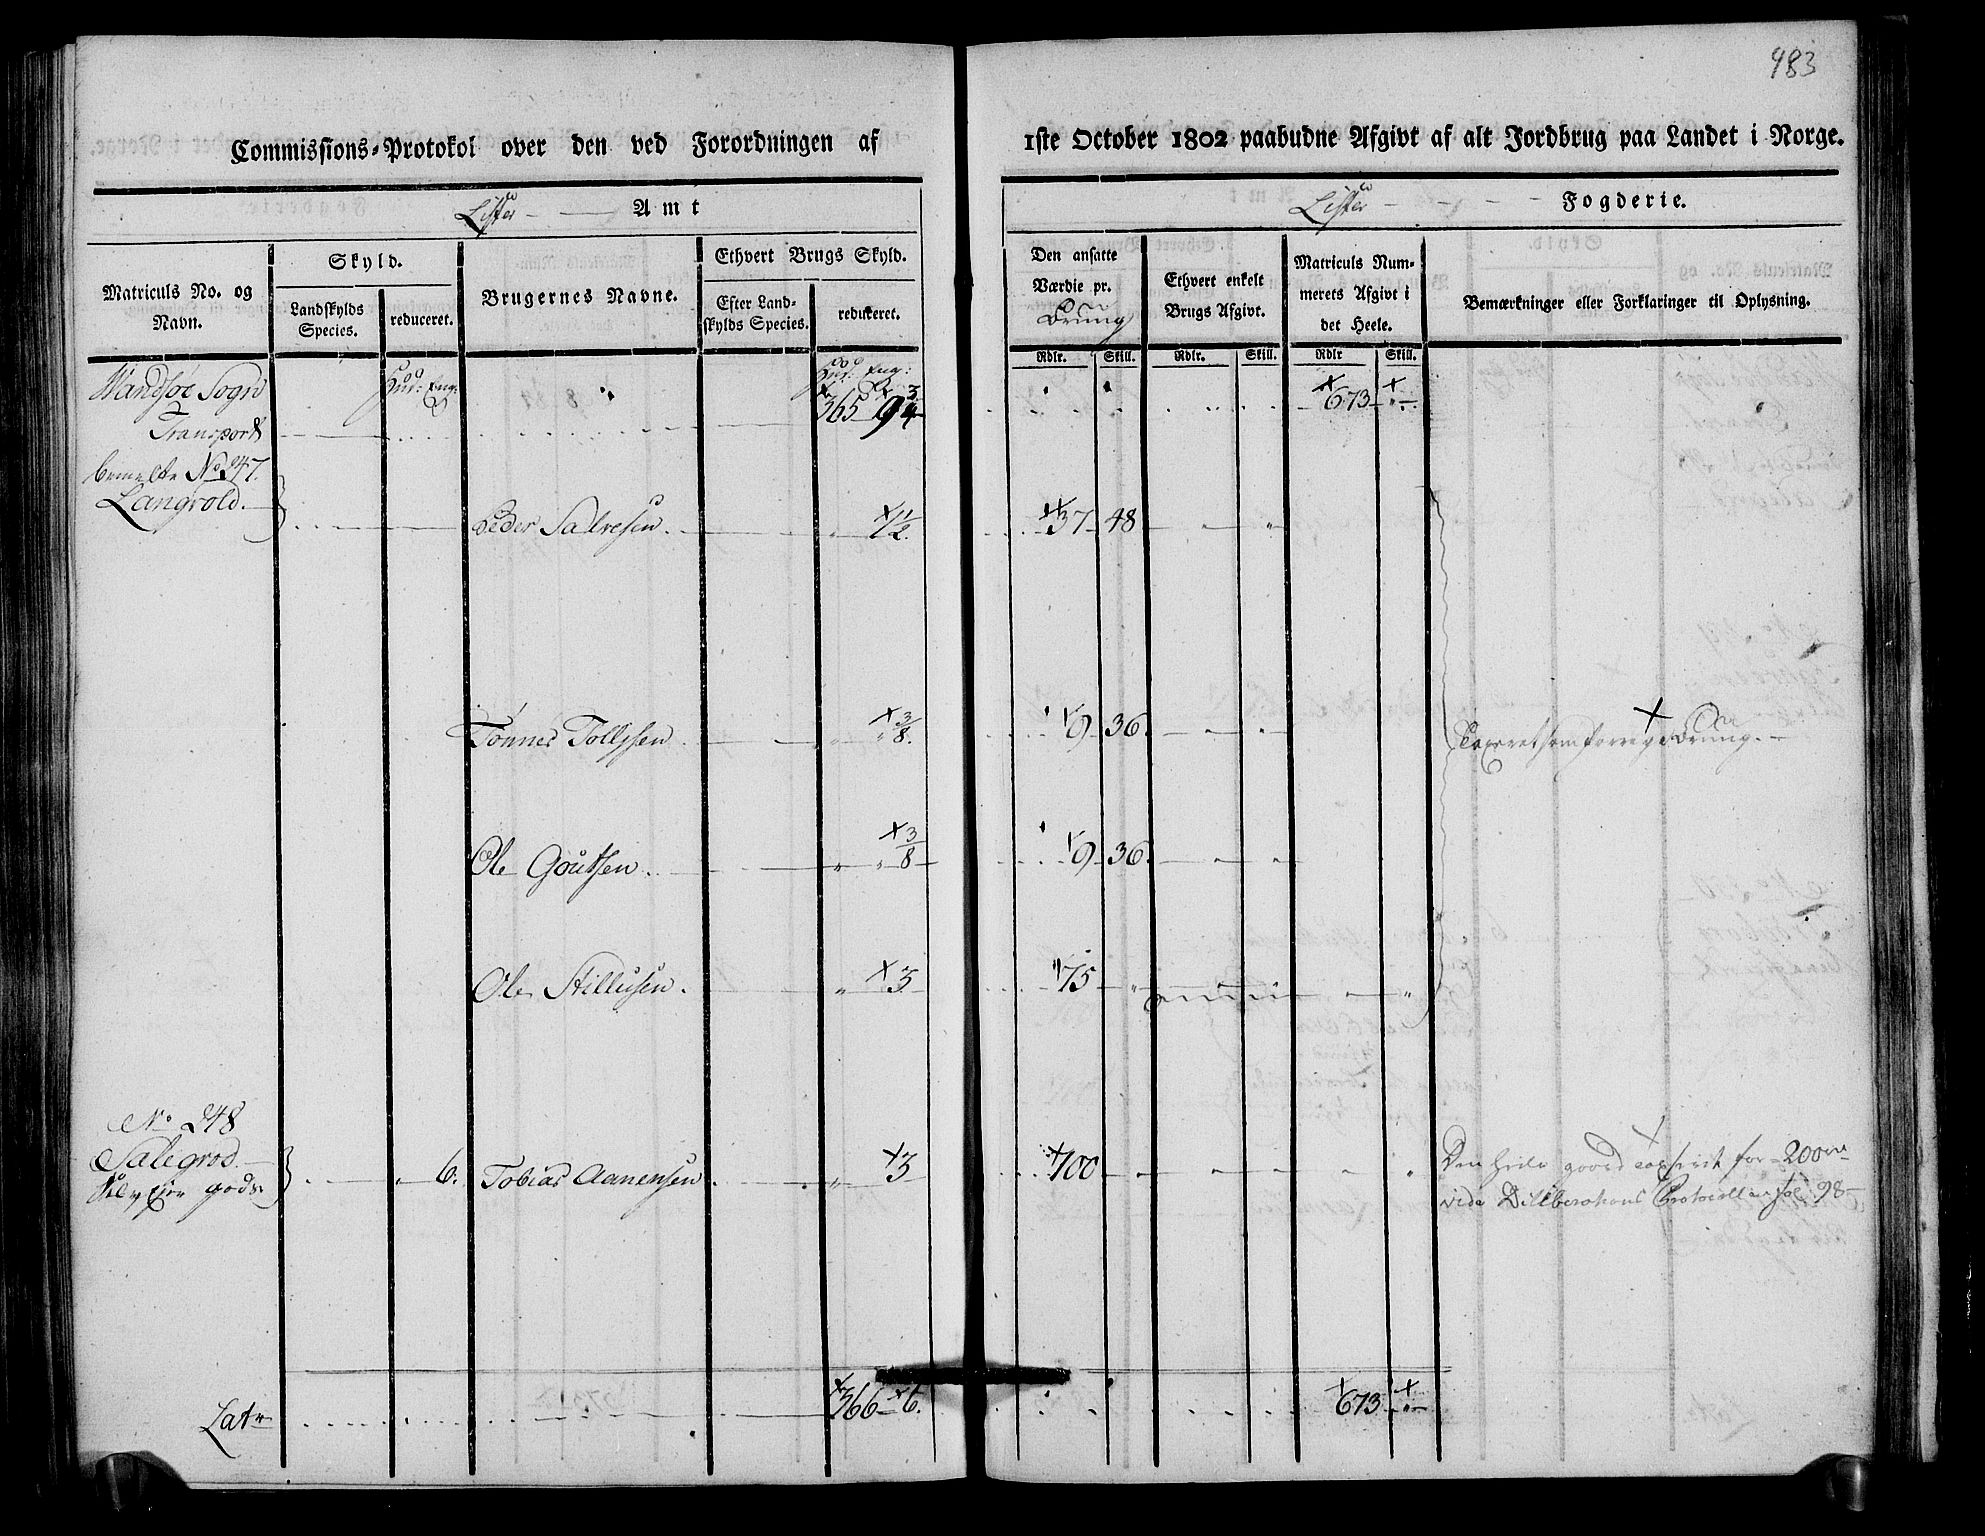 983
Commissions-Protokol over den ved Forordningen af 1ste October 1802 paabudne Afgivt af alt Jordbrug paa Landet i Norge.
Lister Amt
Lister Fogderie.
Matriculs No. og Navn.
Skyld.
Landskylds Species.
reduceret.
Brugernes Navne.
Ethvert Brugs Skyld.
Efter Landskylds Species.
reduceret.
Den ansatte Værdie pr. Bruug
Ethvert enkelt Brugs Afgivt.
Matriculs Nummerets Afgivt i det Heele.
Bemærkninger eller Forklaringer til Oplysning.
Rdlr. Skill. Rdlr. Skill. Rdlr Skill.
Sogn
Transport 365 673
No 247.
Peder Salvesen. 1½ 37 48
Tønnes Tollefsen. 3/8. 9 36.
Ole Goutsen. 3/8 9 36.
Ole Stillufsen. 3 75
No 248
Salegrod 6. Tobias Aanensen 3 100 Den heele gaard taxerit for 200
vide Protocollen fol 98
Latr 366 6. 673